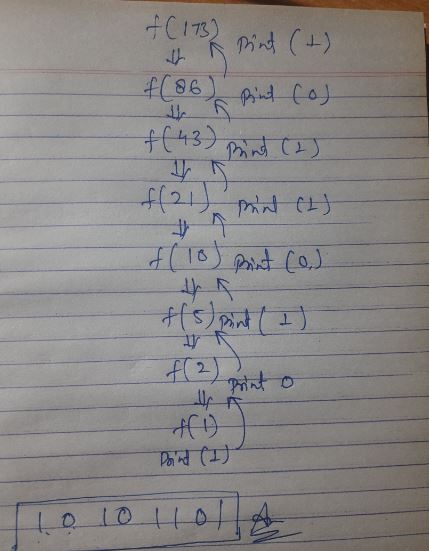 f(173) Print (1)
f(86) Print (0)
f(43) Print (1)
f(21) Print (1)
f(10) Print (0)
f(5) Print (1)
f(2) Print 0
f(1)
Print (1)
1 0 1 0 1 1 0 1